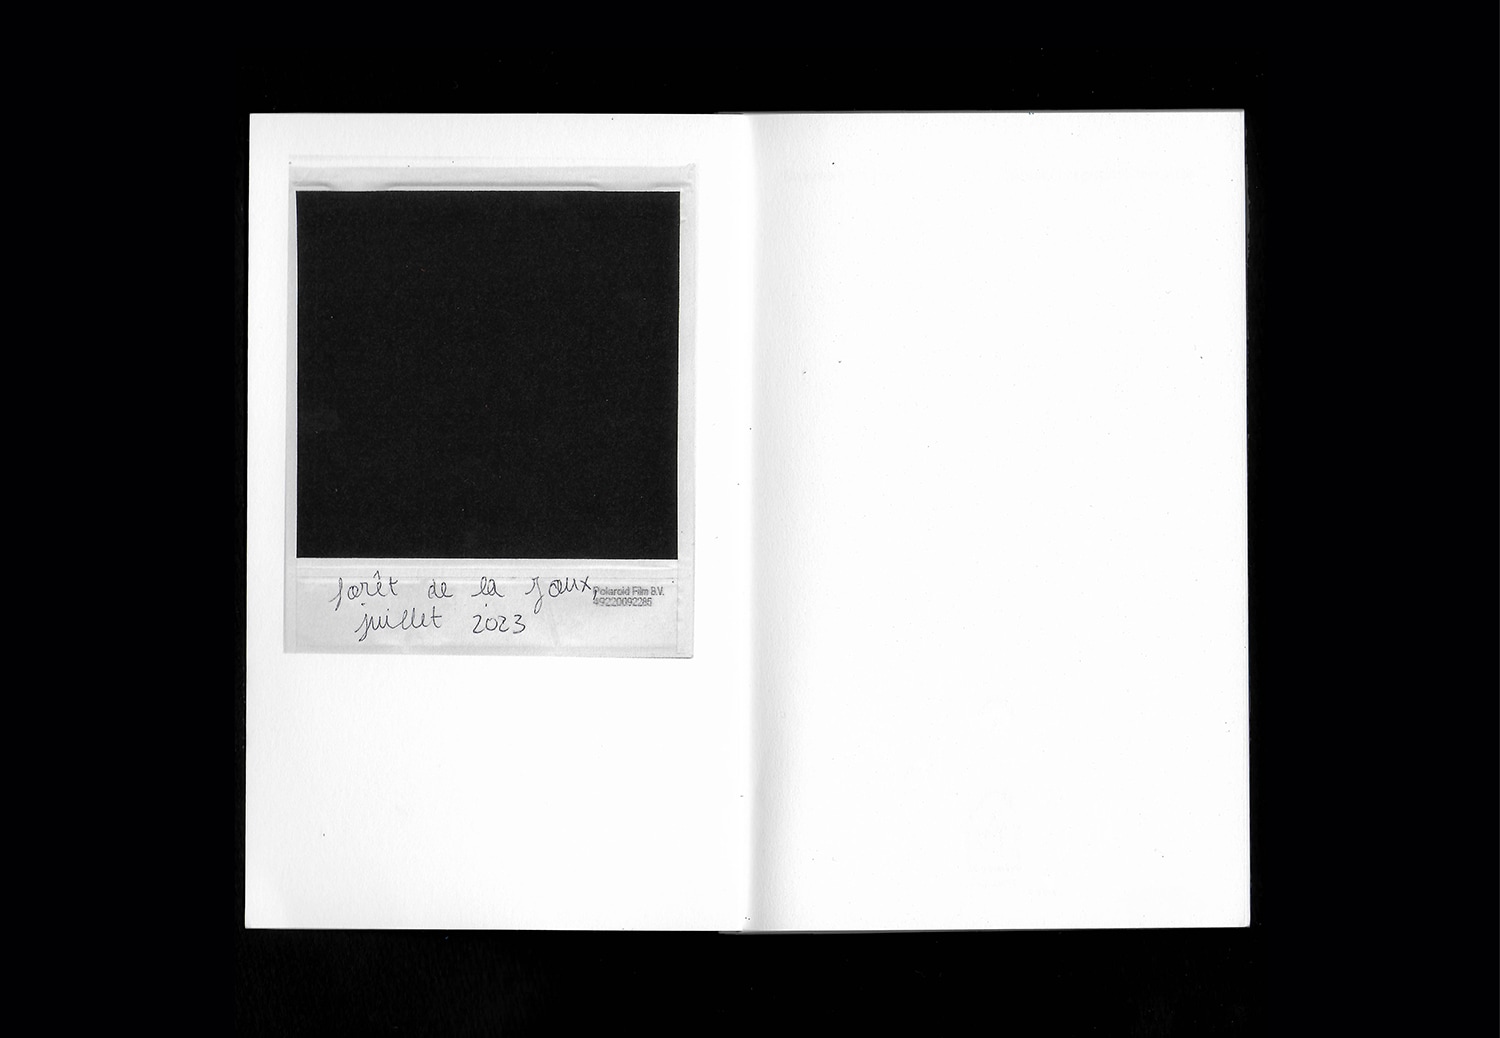 forêt de la Joux,
juillet 2023
Polaroid Film B.V.
49220092285